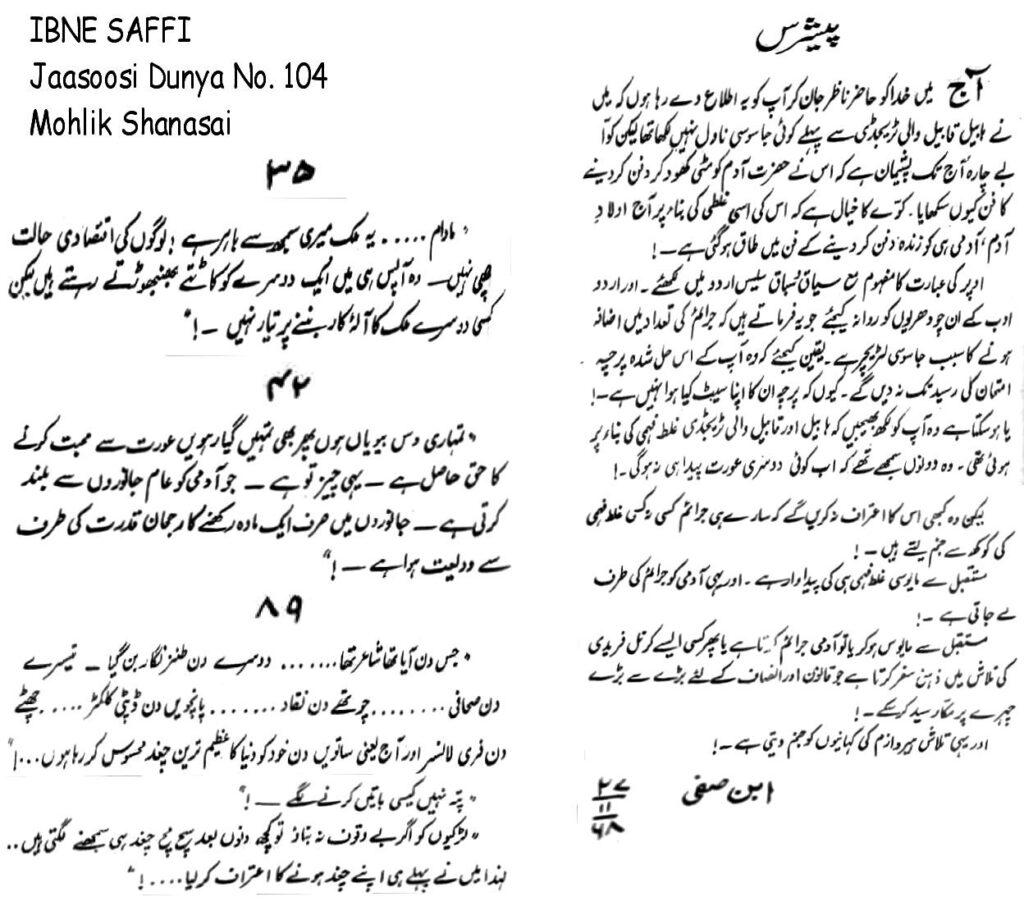 IBNE SAFFI
Jaasoosi Dunya No. 104
Mohlik Shanasai
۳۵
" مادام ..... یہ ملک میری سمجھ سے باہر ہے ! لوگوں کی اقتصادی حالت
اچھی نہیں ـ وہ آپس ہی میں ایک دوسرے کو کاٹتے بھنبھوڑتے رہتے ہیں لیکن
کسی دوسرے ملک کا آلۂ کار بننے پر تیار نہیں ـ !"
۴۲
" تمہاری دس بیویاں ہوں پھر بھی تمہیں گیارہویں عورت سے محبت کرنے
کا حق حاصل ہے ـ یہی چیز تو ہے ـ جو آدمی کو عام جانوروں سے بلند
کرتی ہے ـ جانوروں میں صرف ایک مادہ رکھنے کا رجحان قدرت کی طرف
سے ودلیعت ہوا ہے ـ !"
۸۹
" جس دن آیا تھا شاعر تھا ...... دوسرے دن طنز نگار بن گیا ـ تیسرے
دن صحافی ........ چوتھے دن نقاد ....... پانچویں دن ڈپٹی کلکٹر ..... چھٹے
دن فری لانسر اور آج یعنی ساتویں دن خود کو دنیا کا عظیم ترین چغد محسوس کر رہا ہوں ...!"
" پتہ نہیں کیسی باتیں کرنے لگے ـ !"
" لڑکیوں کو اگر بے وقوف نہ بناؤ تو کچھ دنوں بعد سچ مچ چغد ہی سمجھنے لگتی ہیں ..
لہٰذا میں نے پہلے ہی اپنے چغد ہونے کا اعتراف کر لیا .... !"
پیشرس
آج میں خدا کو حاضر ناظر جان کر آپ کو یہ اطلاع دے رہا ہوں کہ میں
نے ہابیل قابیل والی ٹریجڈی سے پہلے کوئی جاسوسی ناول نہیں لکھا تھا لیکن کوّا
بے چارہ آج تک پشیمان ہے کہ اس نے حضرت آدم کو مٹی کھود کر دفن کر دینے
کا فن کیوں سکھایا . کوّے کا خیال ہے کہ اس کی اسی غلطی کی بناء پر آج اولادِ
آدم ' آدمی ہی کو زندہ دفن کر دینے کے فن میں طاق ہو گئی ہے ـ !
اوپر کی عبارت کا مفہوم مع سیاق سباق سلیس اردو میں لکھئے ـ اور اردو
ادب کے ان چودھریوں کو روانہ کیجئے جو یہ فرماتے ہیں کہ جرائم کی تعداد میں اضافہ
ہونے کا سبب جاسوسی لٹریچر ہے ـ یقین کیجئے کہ وہ آپ کے اس حل شدہ پرچہ
امتحان کی رسید تک نہ دیں گے ـ کیوں کہ پرچہ ان کا اپنا سیٹ کیا ہوا نہیں ہے ـ!
یا ہو سکتا ہے وہ آپ کو لکھ بھیجیں کہ ہابیل اور قابیل والی ٹریجڈی غلط فہمی کی بناء پر
ہوئی تھی ـ وہ دونوں سمجھے تھے کہ اب کوئی دوسری عورت پیدا ہی نہ ہوگی ـ !
لیکن وہ کبھی اس کا اعتراف نہ کریں گے کہ سارے ہی جرائم کسی نہ کسی غلط فہمی
کی کوکھ سے جنم لیتے ہیں ـ !
مستقبل سے مایوسی غلط فہمی ہی کی پیداوار ہے ـ اور یہی آدمی کو جرائم کی طرف
لے جاتی ہے ـ!
مستقبل سے مایوس ہو کر یا تو آدمی جرائم کرتا ہے یا پھر کسی ایسے کرنل فریدی
کی تلاش میں ذہنی سفر کرتا ہے جو قانون اور انصاف کے لئے بڑے سے بڑے
چہرے پر مکّا رسید کر سکے ـ!
اور یہی تلاش ہیروازم کی کہانیوں کو جنم دیتی ہے ـ !
ابن صفی
۲۷
۱۱
۶۸